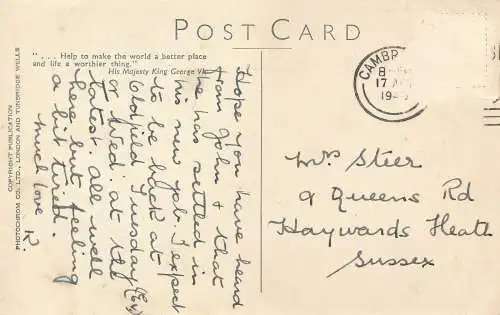 POST CARD
". . . Help to make the world a better place
and life a worthier thing."
His Majesty King George VI.
Hope you have heard
from John & that
he has settled in
his new job. I expect
to be back at
Oldfield Tuesday (Ev)
or Wed. at the
latest. All well
here but feeling
a bit tired.
Much love R.
COPYRIGHT PUBLICATION
PHOTOCHROM CO. LTD., LONDON AND TUNBRIDGE WELLS
CAMBR
17
194
Mrs Steer
9 Queens Rd
Haywards Heath
Sussex